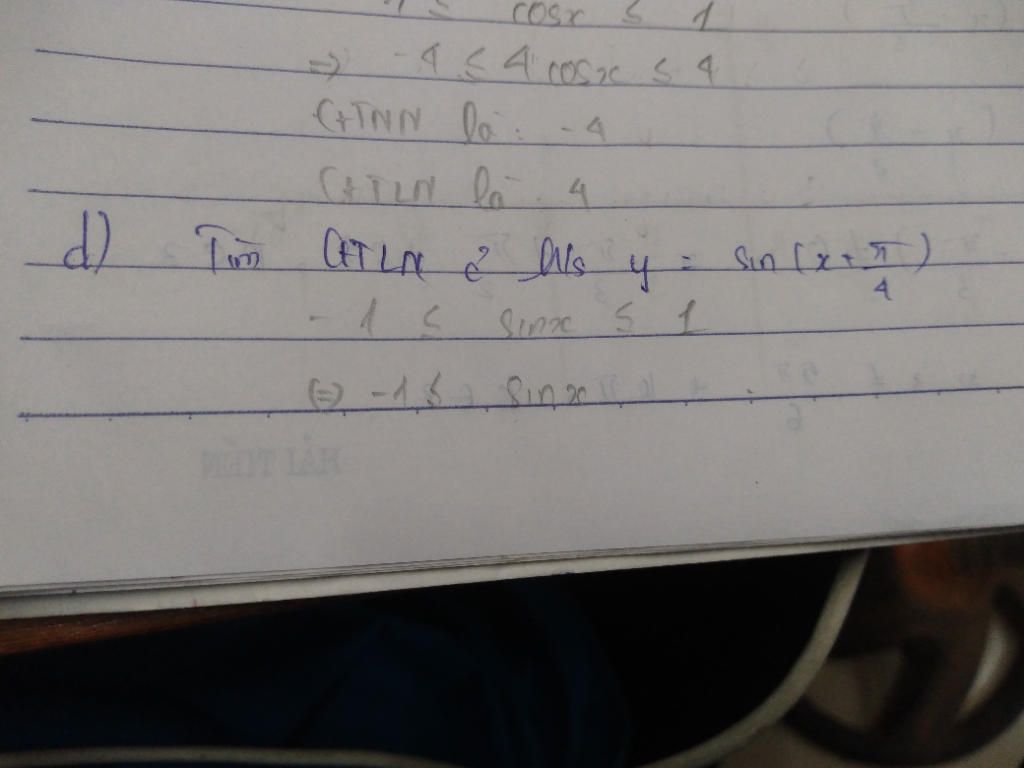 -1 ≤ cosx ≤ 1
=> -4 ≤ 4 cosx ≤ 4
GTNN là: -4
GTLN là: 4
d) Tìm GTLN c̉ h/s y = sin (x + π/4)
-1 ≤ sinx ≤ 1
(=) -1 ≤ sinx
HẢI TIẾN